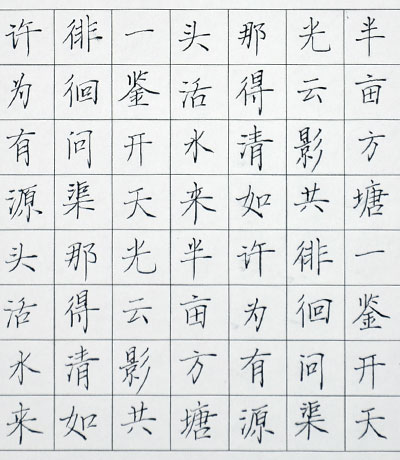 半亩方塘一鉴开天
光云影共徘徊问渠
那得清如许为有源
头活水来半亩方塘
一鉴开天光云影共
徘徊问渠那得清如
许为有源头活水来